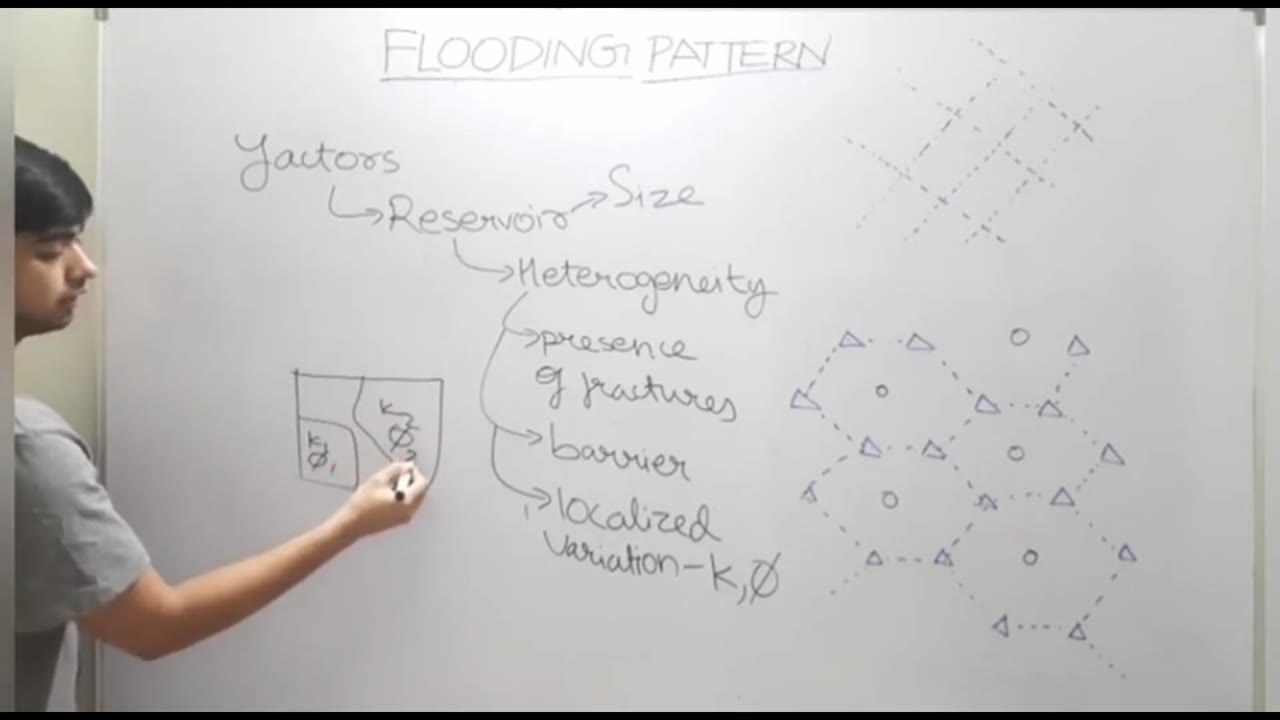 FLOODING PATTERN
Factors
Reservoir
Size
Heterogeneity
presence
of fractures
barrier
localized
variation - k, ø
k₁
ø₁
k₂
ø₂